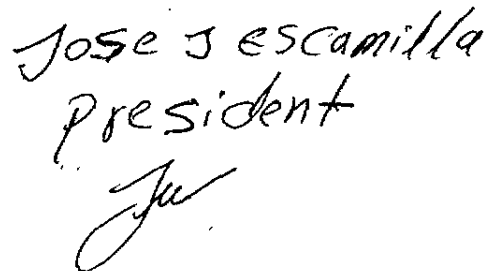 Jose J escamilla
president